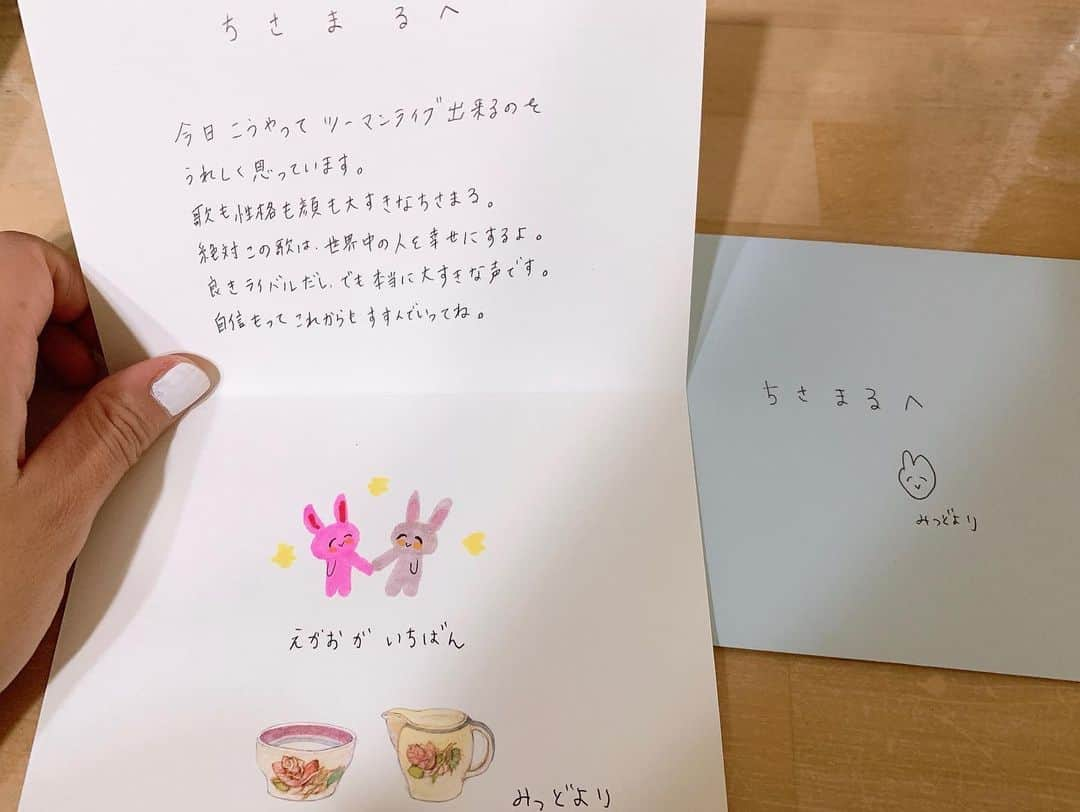 ちさまるへ
今日こうやってツーマンライブ出来るのを
うれしく思っています。
歌も性格も顔も大すきなちさまる。
絶対この歌は、世界中の人を幸せにするよ。
良きライバルだし、でも本当に大すきな声です。
自信もってこれからもすすんでいってね。
えがおがいちばん
みつどより
ちさまるへ
みつどより